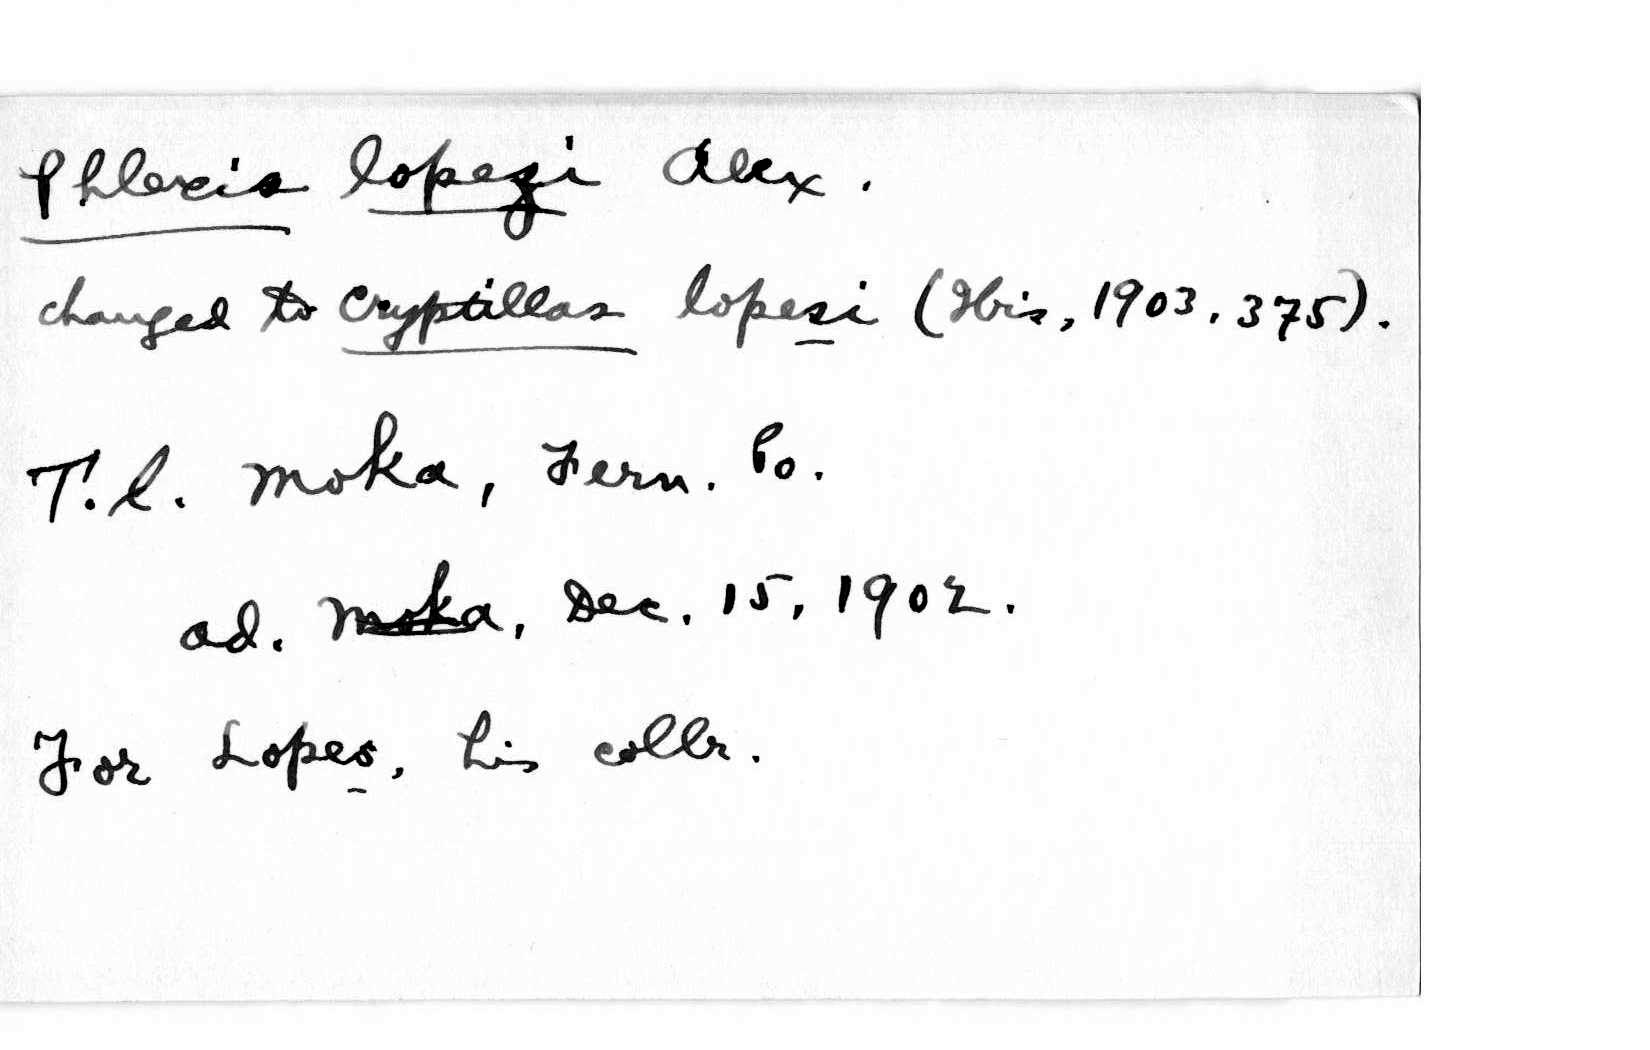 Phlexis lopezi Alex.
changed to Cryptillas lopesi (Ibis, 1903, 375).
T.l. Moka, Fern. Po.
ad. Moka, Dec. 15, 1902.
For Lopes, his collr.